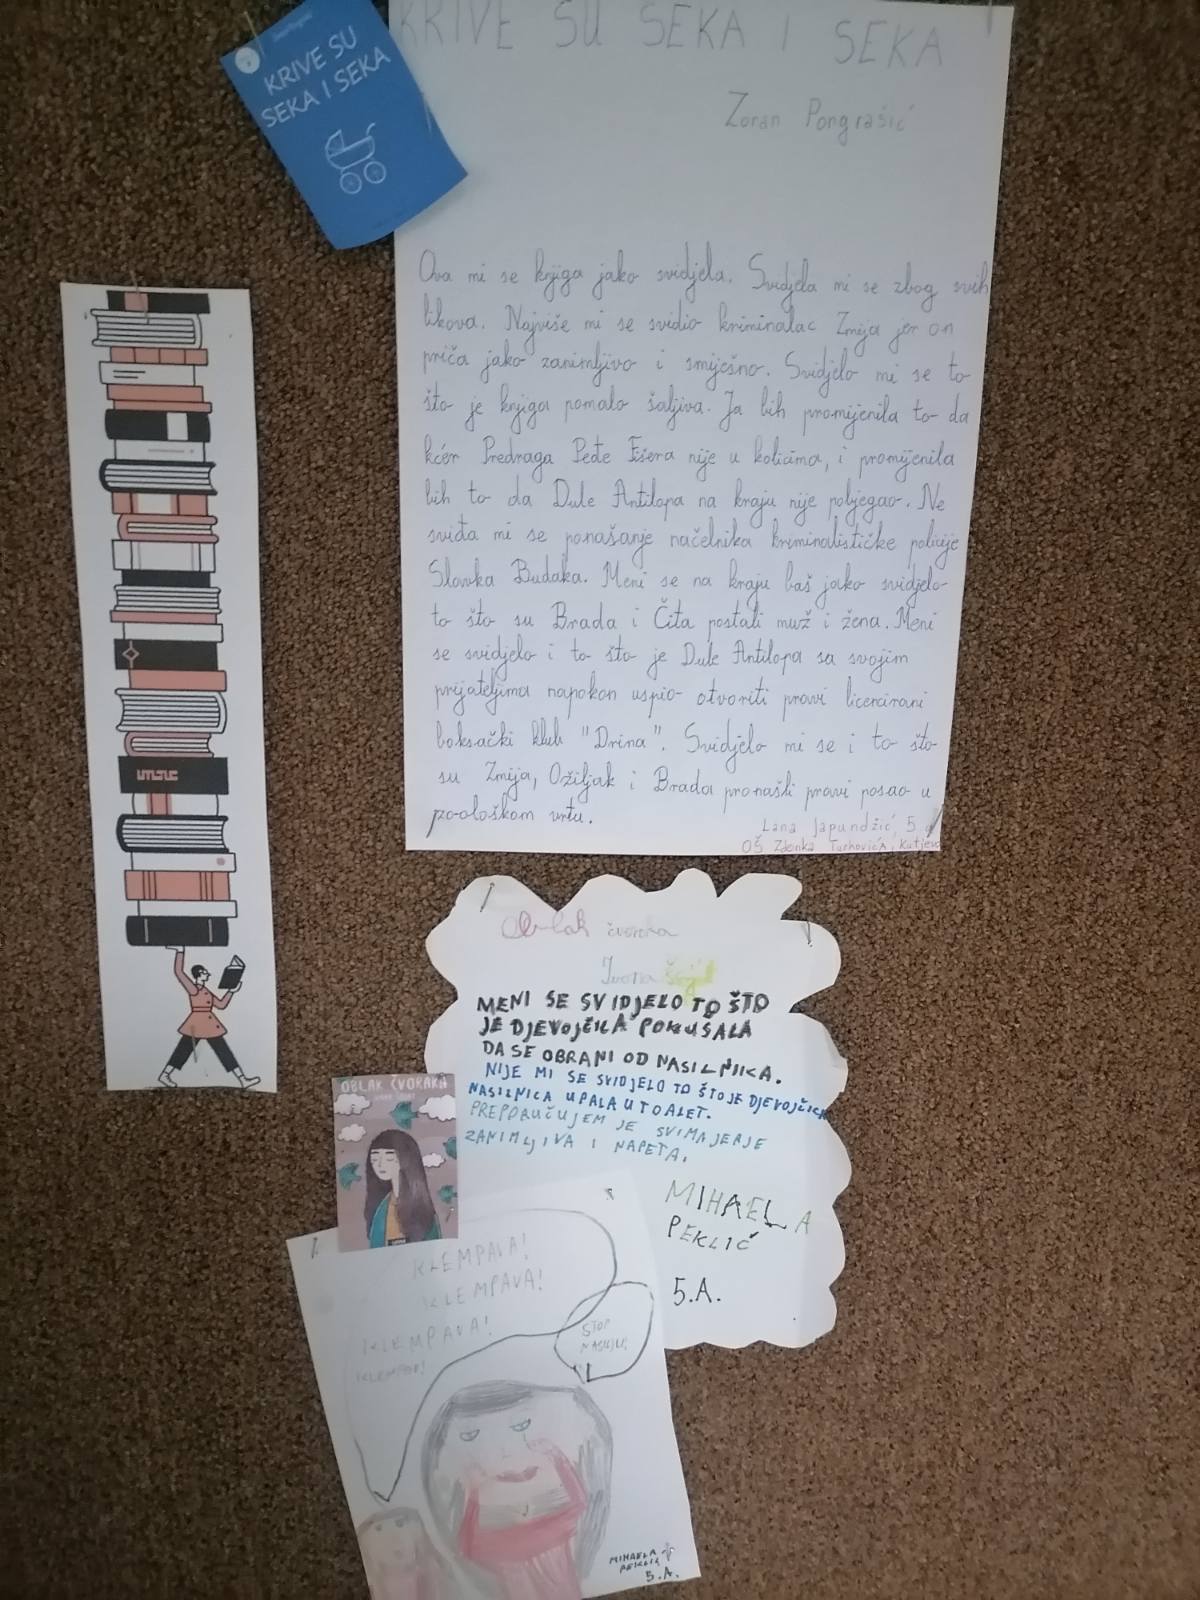 KRIVE SU
SEKA I SEKA
KRIVE SU SEKA I SEKA
Zoran Pongrašić
Ova mi se knjiga jako svidjela. Svidjela mi se zbog svih
likova. Najviše mi se svidio kriminalac Zmija jer on
priča jako zanimljivo i smiješno. Svidjelo mi se to
što je knjiga pomalo šaljiva. Ja bih promijenila to da
kćer Predraga Peđe Fišera nije u kolicima, i promijenila
bih to da Dule Antilopa na kraju nije pobjegao. Ne
sviđa mi se ponašanje načelnika kriminalističke policije
Slavka Budaka. Meni se na kraju baš jako svidjelo
to što su Brada i Čita postali muž i žena. Meni
se svidjelo i to što je Dule Antilopa sa svojim
prijateljima napokon uspio otvoriti pravi licencirani
boksački klub "Drina". Svidjelo mi se i to što
su Zmija, Ožiljak i Brada pronašli pravi posao u
zoološkom vrtu.
Lana Japundžić, 5.
OŠ Zdenka Turkovića, Kutjevo
Oblak čvoraka
Ivona
MENI SE SVIDJELO TO ŠTO
JE DJEVOJČICA POKUŠALA
DA SE OBRANI OD NASILNIKA.
NIJE MI SE SVIDJELO TO ŠTO JE DJEVOJČICA
NASILNICA UPALA U TOALET.
PREPORUČUJEM JE SVIMA JER JE
ZANIMLJIVA I NAPETA.
MIHAELA
PEKLIĆ
5.A.
OBLAK ČVORAKA
KLEMPAVA!
KLEMPAVA!
KLEMPAVA!
STOP
NASILJU!
MIHAELA
PEKLIĆ
5.A.